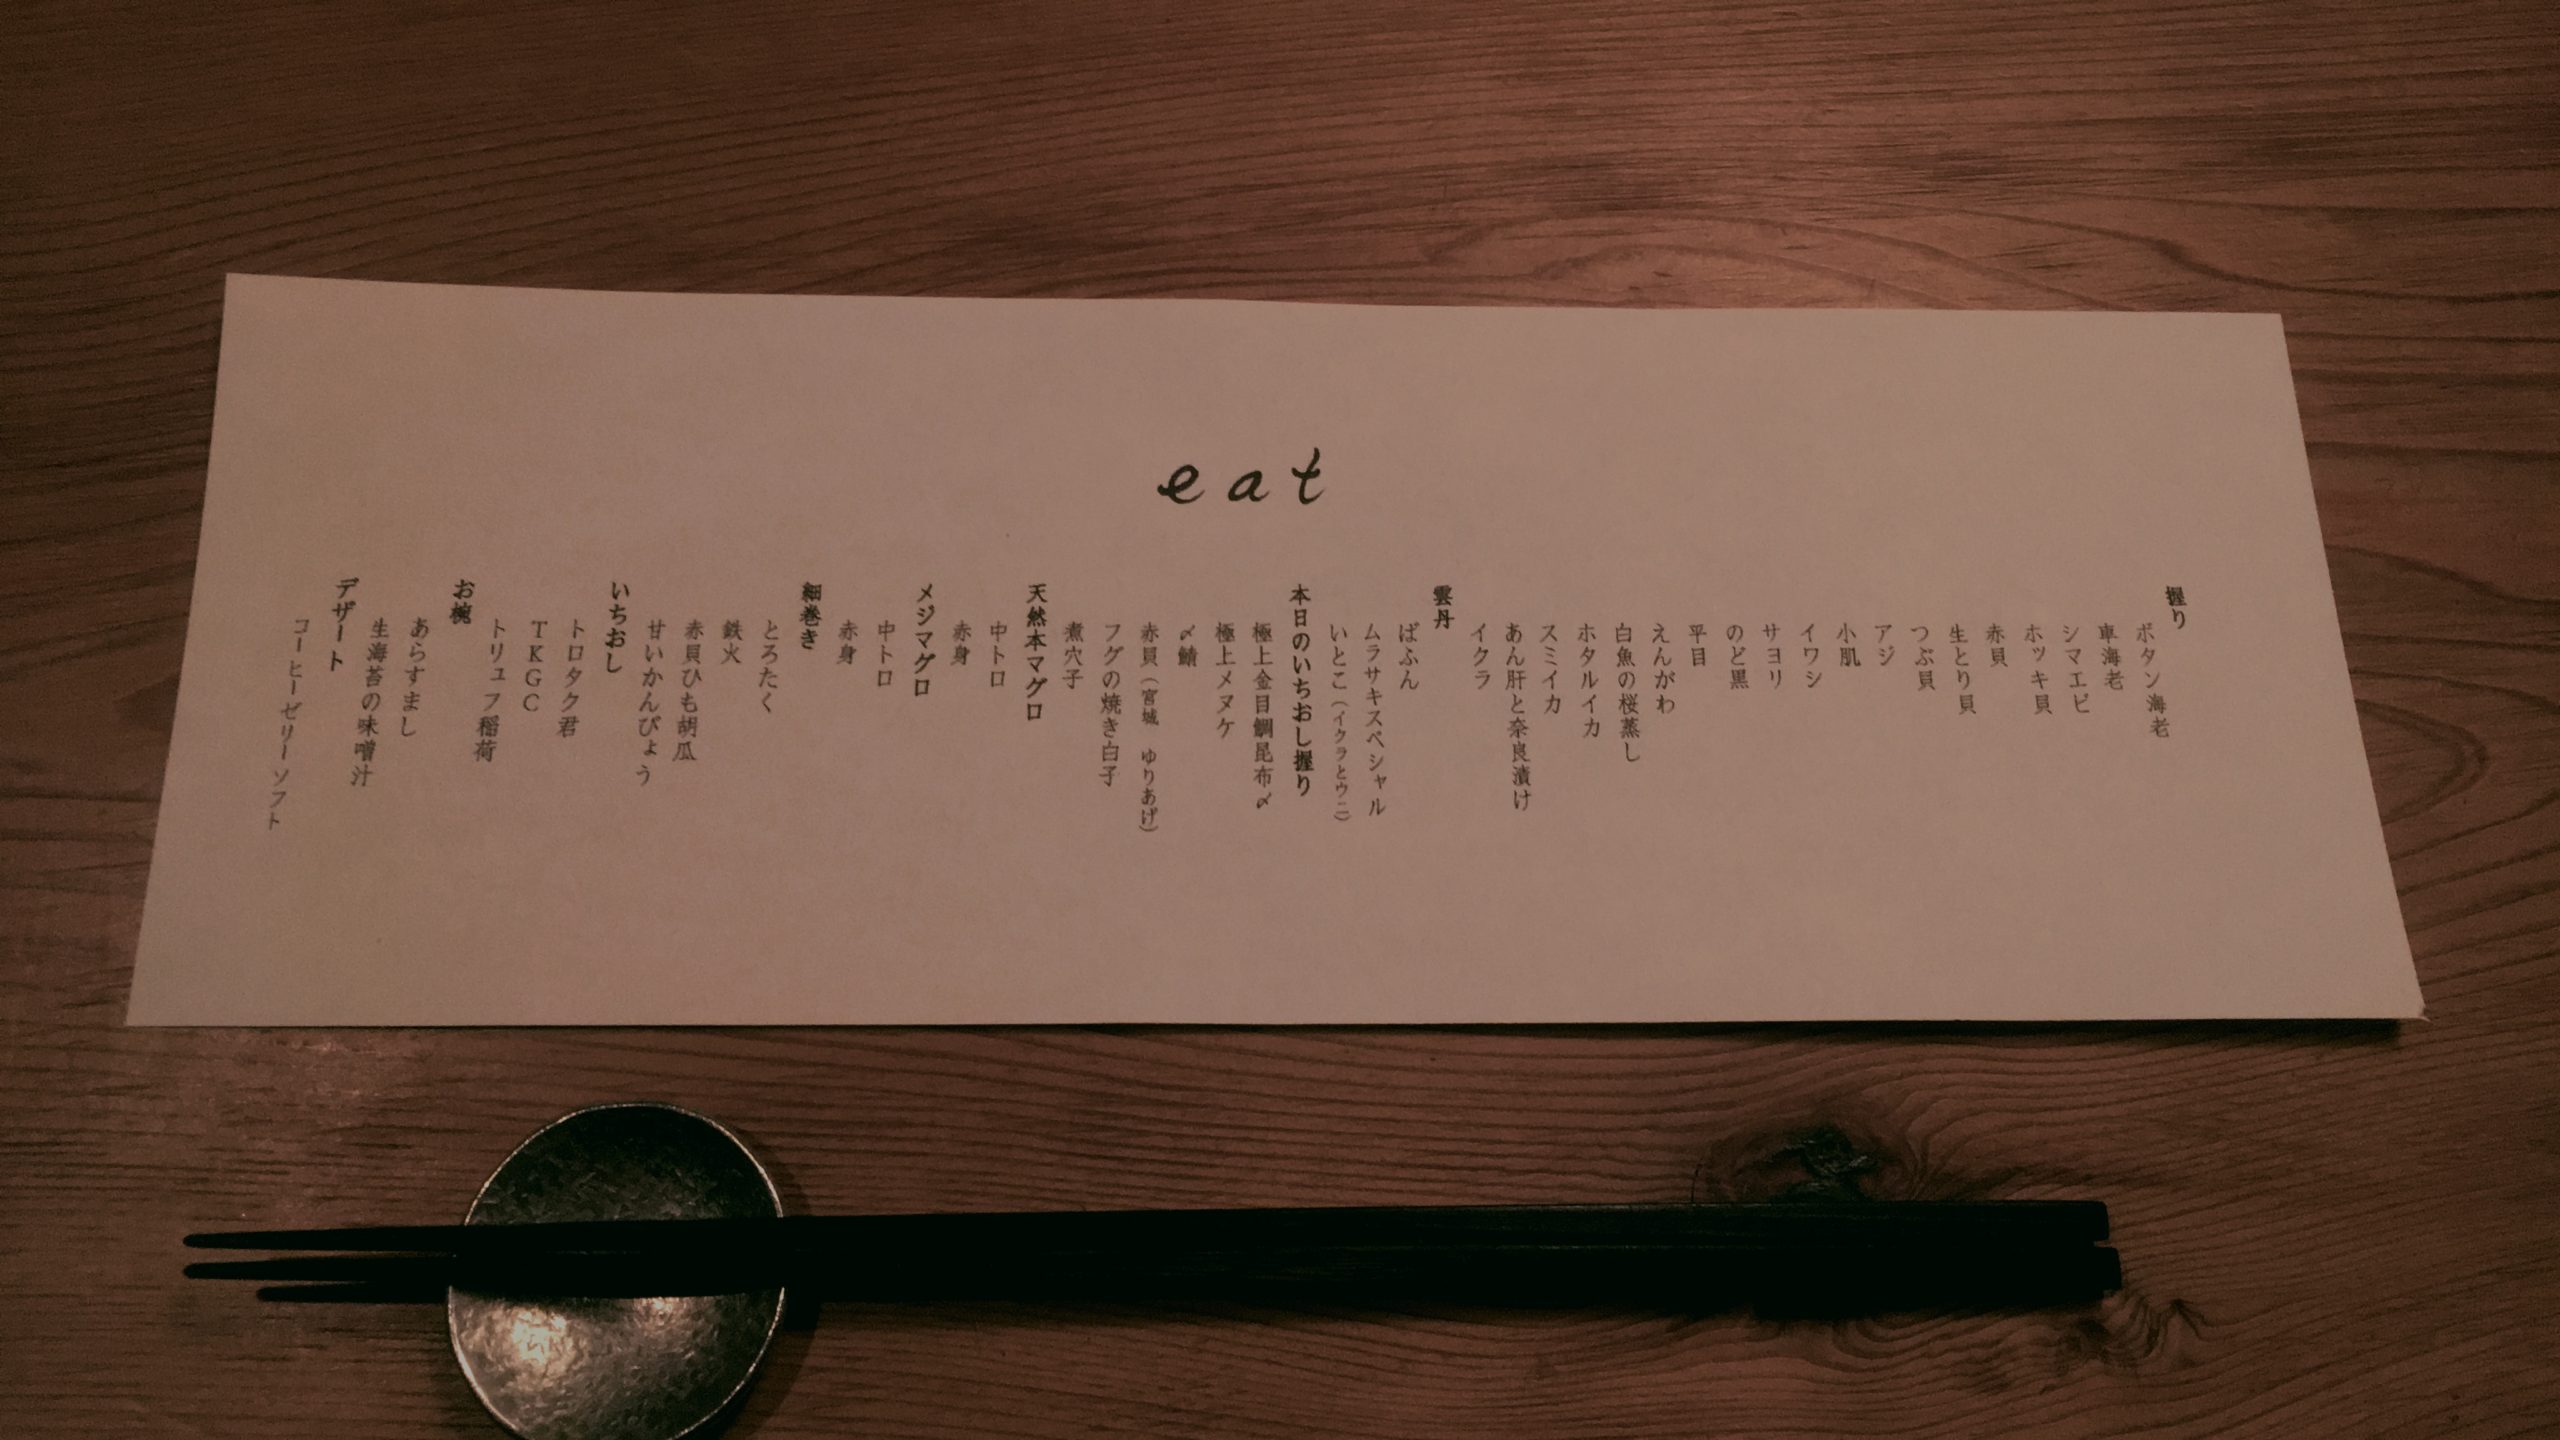 eat
握り
ボタン海老
車海老
シマエビ
ホッキ貝
赤貝
生とり貝
つぶ貝
アジ
小肌
イワシ
サヨリ
のど黒
平目
えんがわ
白魚の桜蒸し
ホタルイカ
スミイカ
あん肝と奈良漬け
イクラ
雲丹
ばふん
ムラサキスペシャル
いとこ（イクラとウニ）
本日のいちおし握り
極上金目鯛昆布〆
極上メヌケ
〆鯖
赤貝（宮城 ゆりあげ）
フグの焼き白子
煮穴子
天然本マグロ
中トロ
赤身
メジマグロ
中トロ
赤身
細巻き
とろたく
鉄火
赤貝ひも胡瓜
甘いかんぴょう
いちおし
トロタク君
TKGC
トリュフ稲荷
お椀
あらすまし
生海苔の味噌汁
デザート
コーヒーゼリーソフト